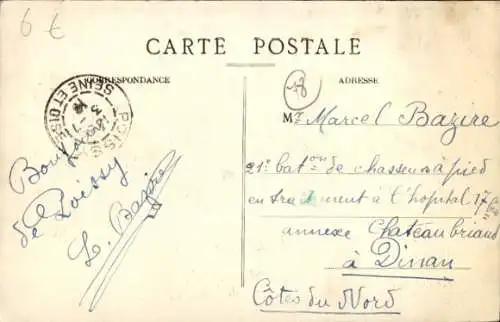 6 €
CARTE POSTALE
CORRESPONDANCE
ADRESSE
78
POISSY
SEINE ET OISE
Bonjour
de Poissy
L. Bazire
Mr Marcel Bazire
21e bat on de chasseurs à pied
en traitement à l'hôpital 17
annexe Chateaubriand
à Dinan
Côtes du Nord